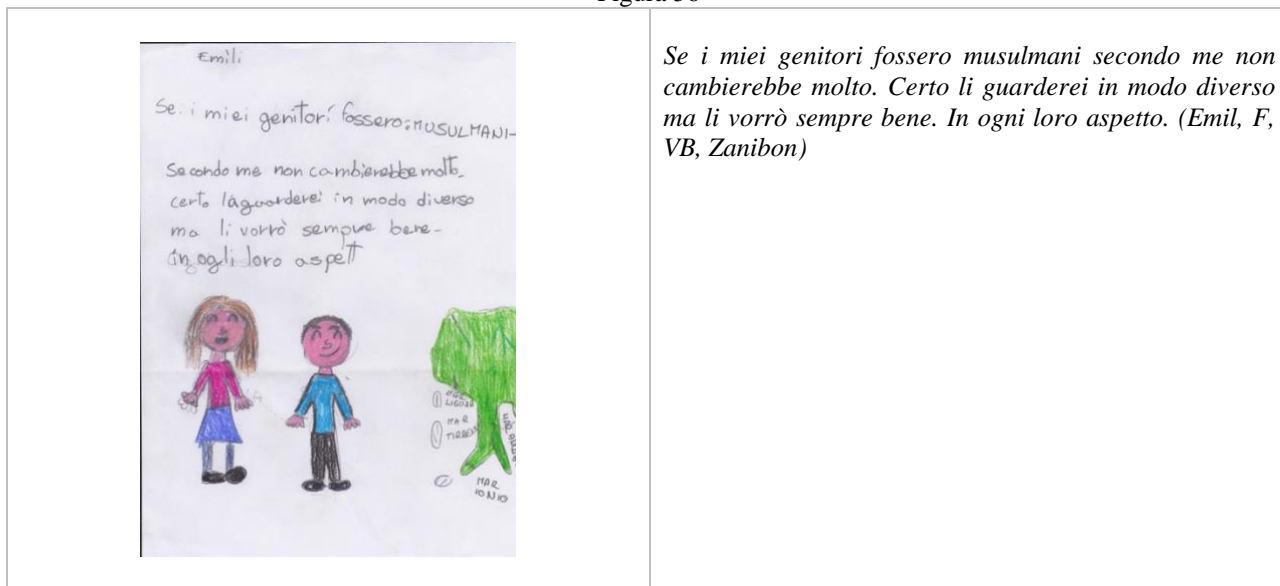 Emili
Se i miei genitori fossero: MUSULMANI-
Secondo me non cambierebbe molto.
certo la guarderei in modo diverso
ma li vorrò sempre bene-
in ogli loro aspett
MAR
LIGURE
MAR
MAR
IONIO
Se i miei genitori fossero musulmani secondo me non
cambierebbe molto. Certo li guarderei in modo diverso
ma li vorrò sempre bene. In ogni loro aspetto. (Emil, F,
VB, Zanibon)